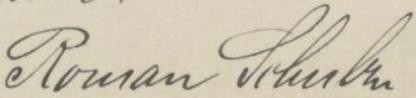 Roman Schuber